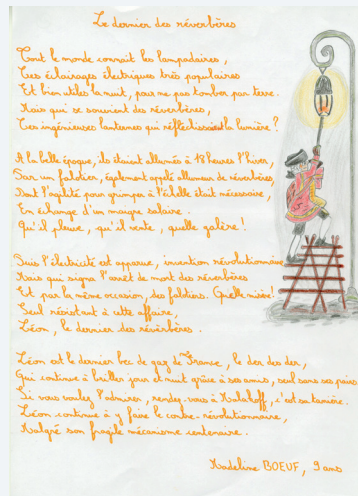 Le dernier des réverbères
Tout le monde connaît les lampadaires,
Ces éclairages électriques très populaires
Et bien utiles la nuit, pour ne pas tomber par terre.
Mais qui se souvient des réverbères,
Ces ingénieuses lanternes qui réfléchissent la lumière ?
A la belle époque, ils étaient allumés à 17 heures l'hiver,
Par un falotier, également appelé allumeur de réverbères,
Dont l'agilité pour grimper à l'échelle était nécessaire,
En échange d'un maigre salaire.
Qu'il pleuve, qu'il vente, quelle galère !
Puis l'électricité est apparue, invention révolutionnaire
Mais qui signa l'arrêt de mort des réverbères
Et par la même occasion, des falotiers. Quelle misère !
Seul résistant à cette affaire,
Léon, le dernier des réverbères.
Léon est le dernier bec de gaz de France, le der des der,
Qui continue à briller jour et nuit grâce à ses amis, seul sans ses pairs
Si vous voulez l'admirer, rendez-vous à Malakoff, c'est sa tanière.
Léon continue à y faire le contre-révolutionnaire,
Malgré son fragile mécanisme centenaire.
Madeline BOEUF, 9 ans